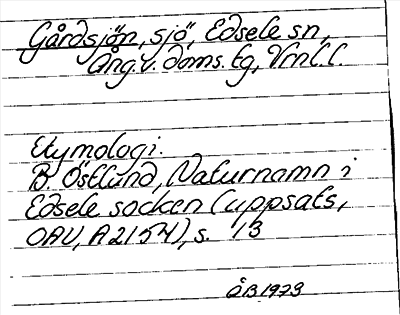 Gårdsjön, sjö, Edsele sn,
Ång.v. doms.tg, Vrnl.l.
Etymologi.
B. Östlund, Naturnamn i
Edsele socken (uppsats,
OAU, A 2154), s. 13
ÅB 1973